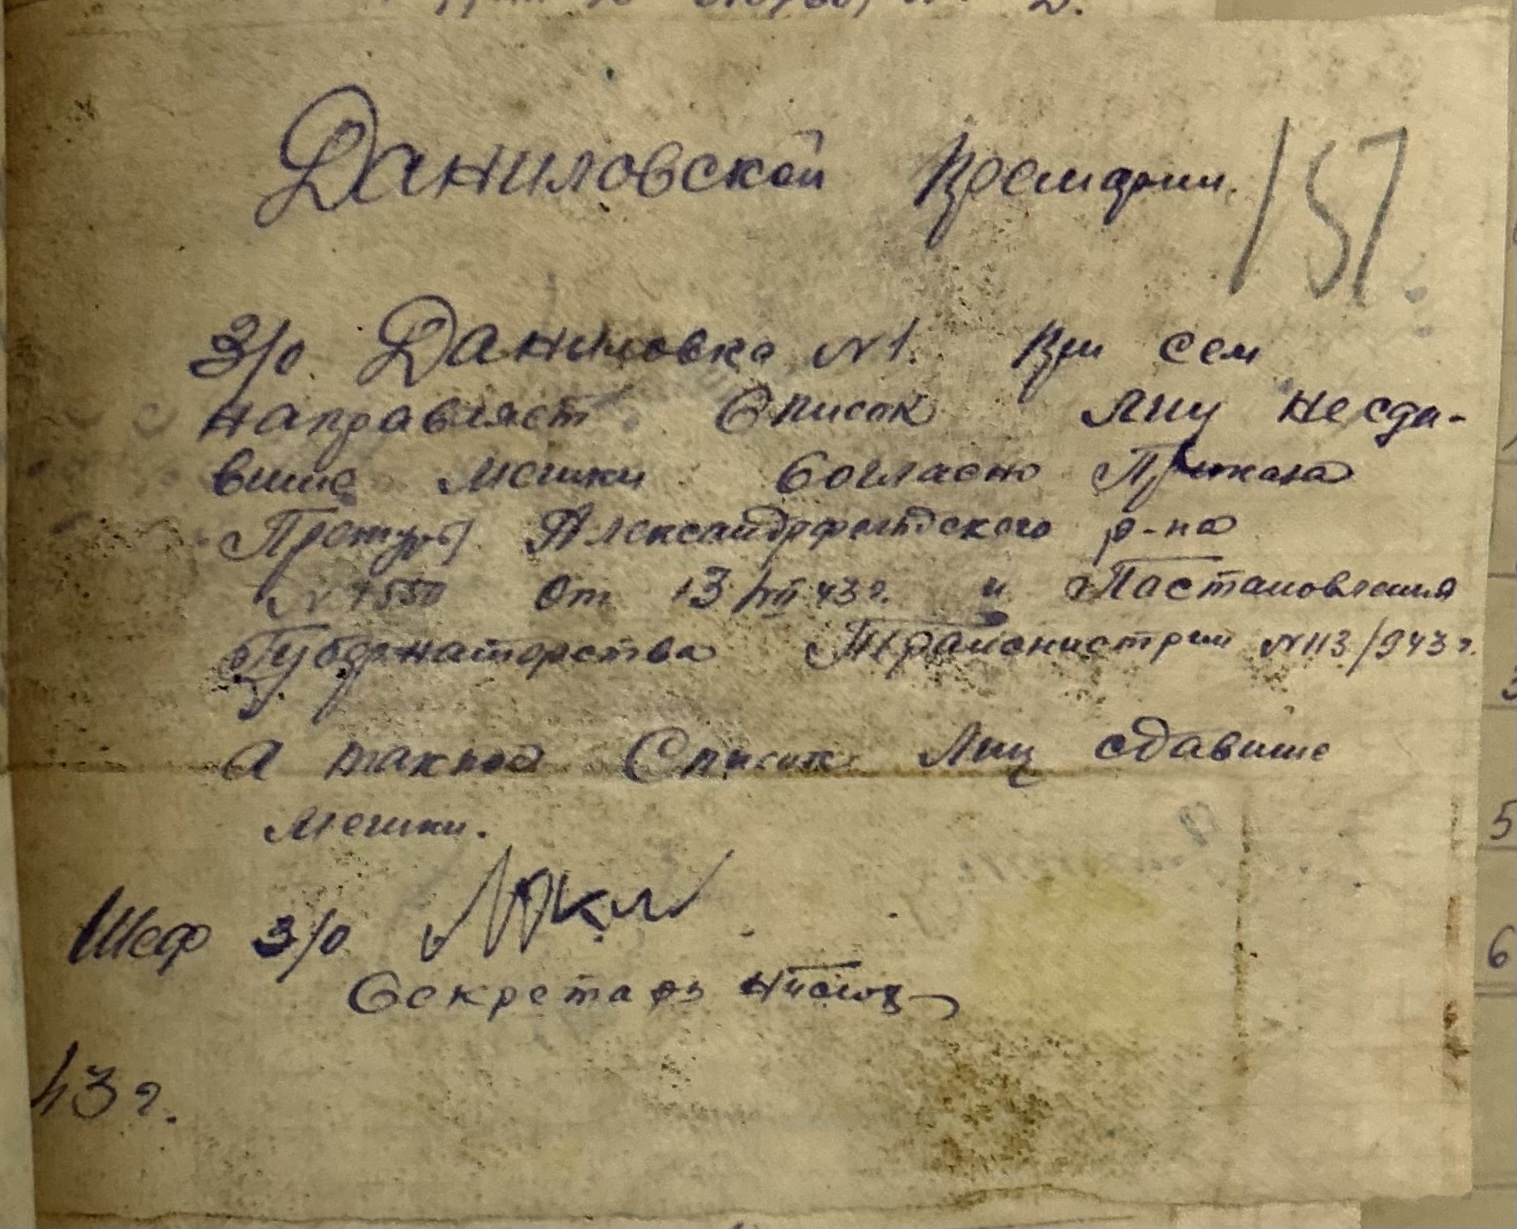 Даниловской Премарии.
157.
З/о. Даниловка №1. При сем
направляет Список Лиц несда-
вшие мешки Согласно Приказа
Претуры Александрфельдского р-на
от 13/VII 43 г. и Пастановления
Губернаторства Транснистрии №113/943 г.
А такжэ Список Лиц сдавшие
мешки.
Шеф з/о
Секретарь
43 г.